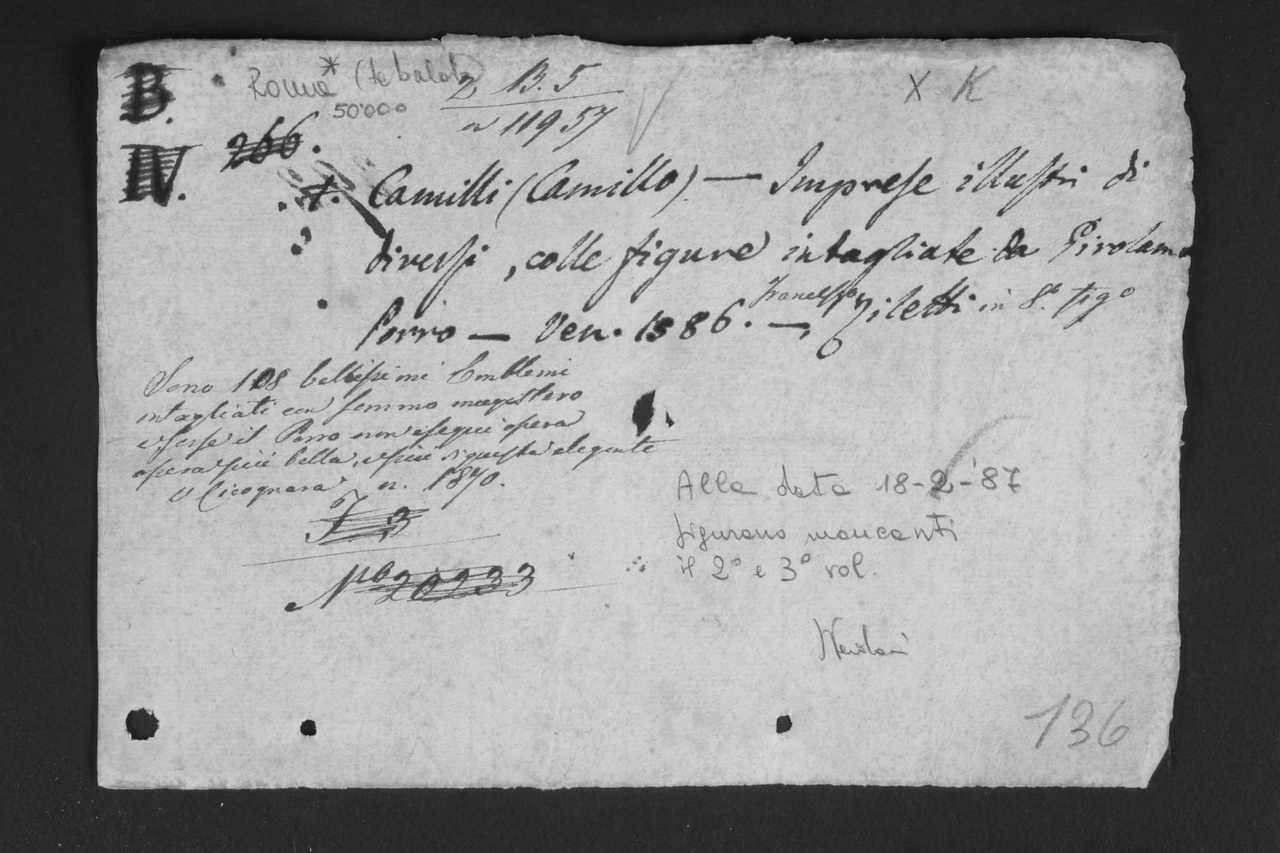 B.
IV.
Roma*
50'000
2 B. 5
a 11957
X K
266.
Camilli (Camillo) — Imprese illustri di
diversi, colle figure intagliate da Girolamo
Porro — Ven. 1586. — Francesco Ziletti in 8° fig°
Sono 108 bellissimi Emblemi
intagliati con sommo magistero
e forse il Porro non eseguì opera
opera più bella, e più di questa elegante
V. Cicognara n. 1870.
Nº 20233
Alla data 18-2-'87
figurano mancanti
il 2° e 3° vol.
136